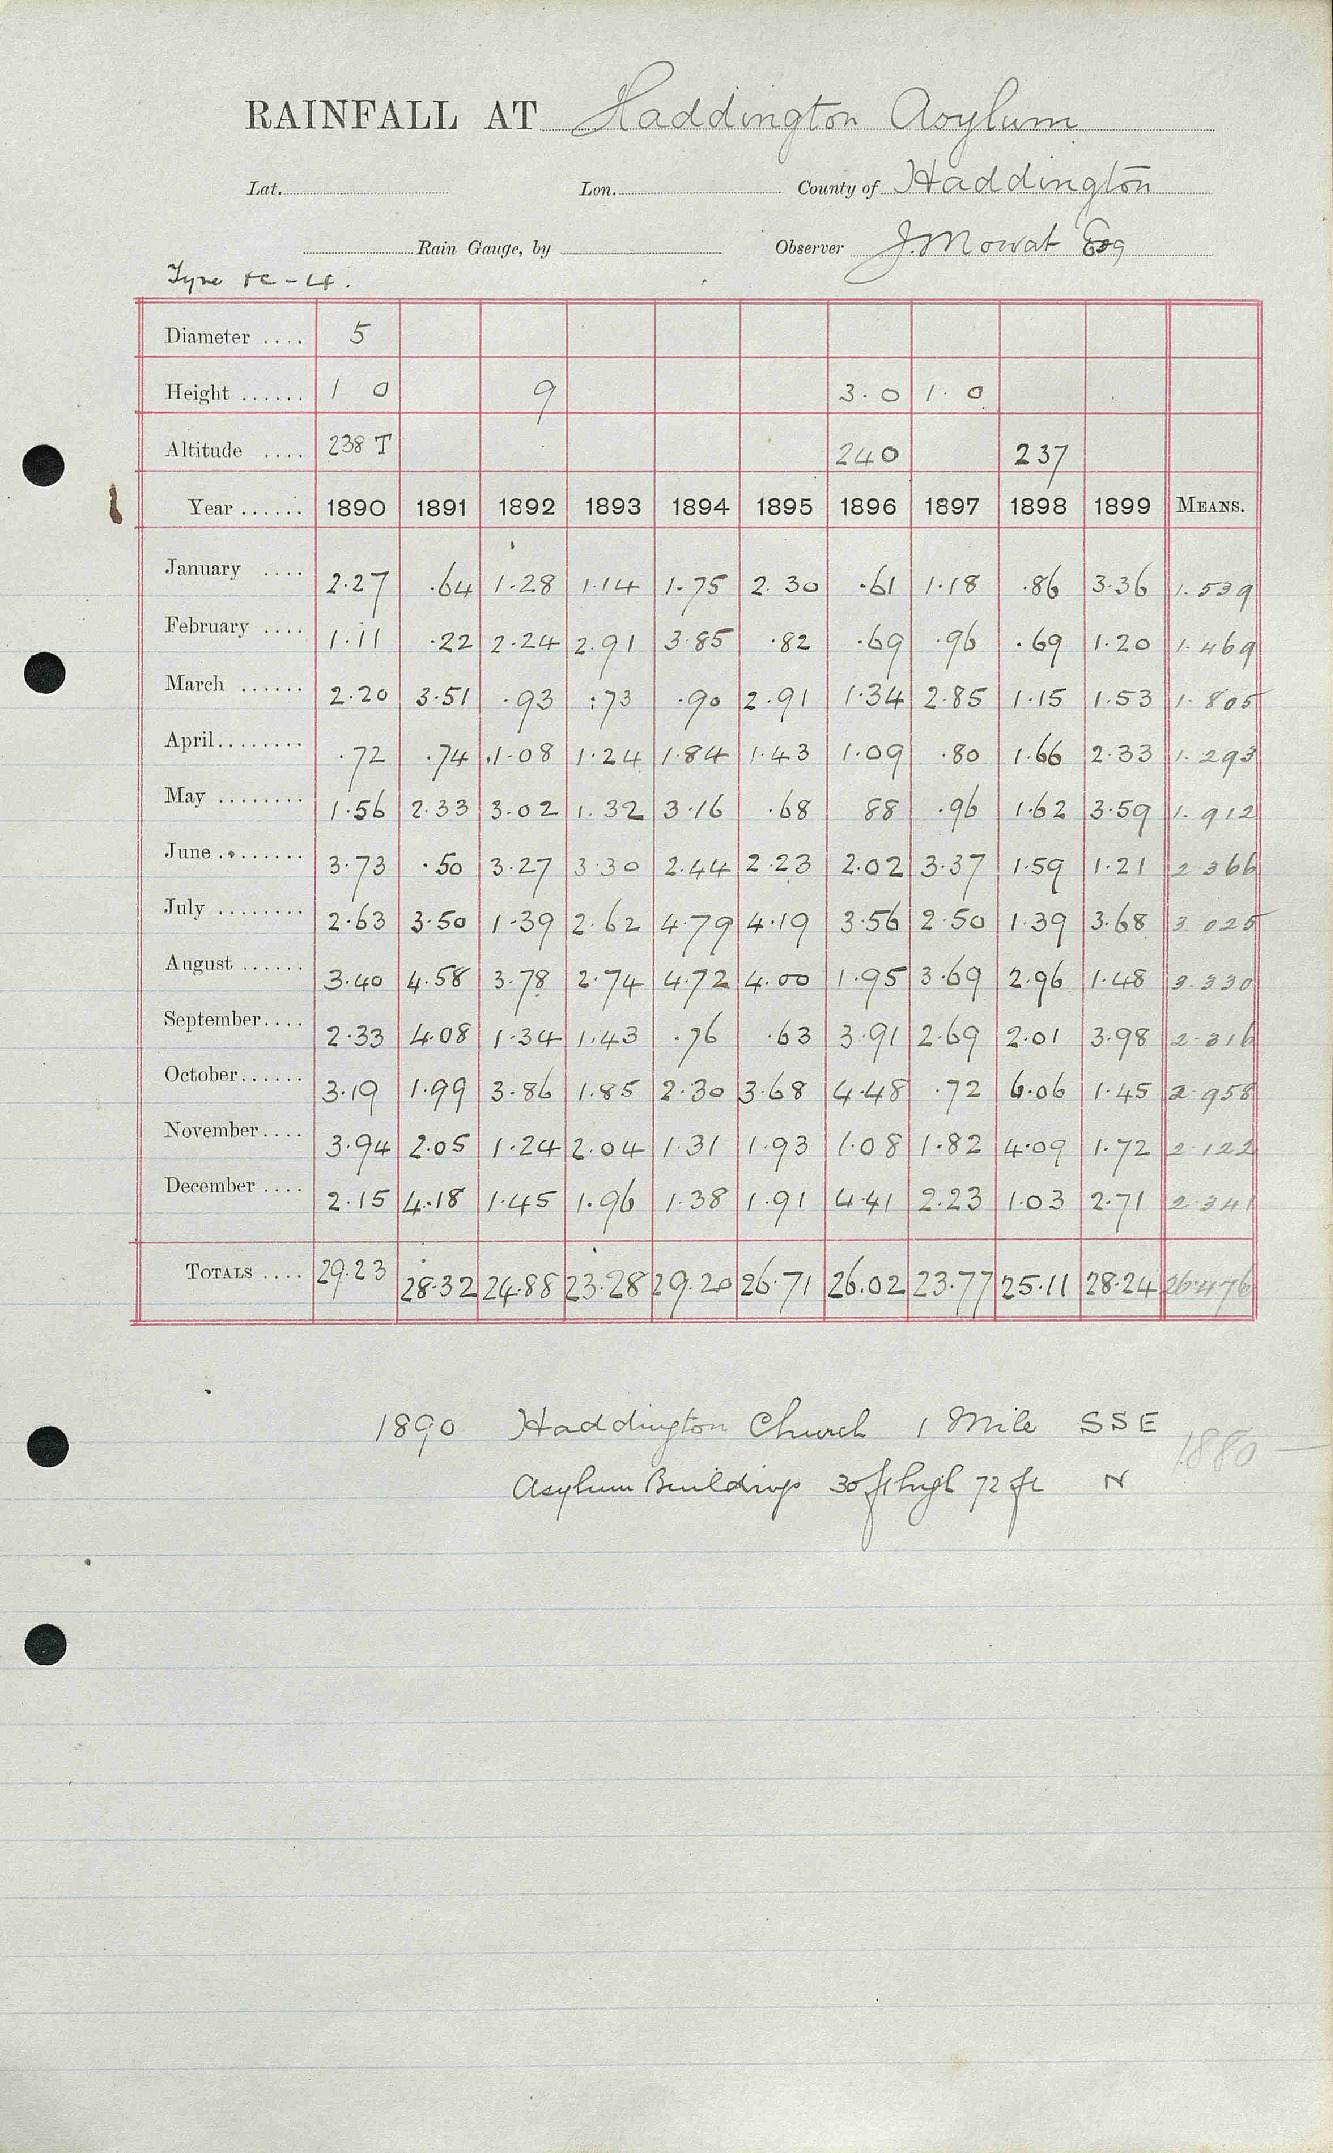 RAINFALL AT Haddington Asylum
Lat. Lon. County of Haddington
Rain Gauge, by Observer J. Mowat Esq
Tyne
Diameter .... 5
Height ...... 1 0 9 3.0 1.0
Altitude .... 238 T 240 237
Year ...... 1890 1891 1892 1893 1894 1895 1896 1897 1898 1899 MEANS.
January .... 2.27 .64 1.28 1.14 1.75 2.30 .61 1.18 .86 3.36 1.539
February .... 1.11 .22 2.24 2.91 3.85 .82 .69 .96 .69 1.20 1.469
March ...... 2.20 3.51 .93 .73 .90 2.91 1.34 2.85 1.15 1.53 1.805
April........ .72 .74 1.08 1.24 1.84 1.43 1.09 .80 1.66 2.33 1.293
May ........ 1.56 2.33 3.02 1.32 3.16 .68 88 .96 1.62 3.59 1.912
June ........ 3.73 .50 3.27 3.30 2.44 2.23 2.02 3.37 1.59 1.21 2.366
July ........ 2.63 3.50 1.39 2.62 4.79 4.19 3.56 2.50 1.39 3.68 3.025
August ...... 3.40 4.58 3.78 2.74 4.72 4.00 1.95 3.69 2.96 1.48 3.330
September.... 2.33 4.08 1.34 1.43 .76 .63 3.91 2.69 2.01 3.98 2.316
October...... 3.19 1.99 3.86 1.85 2.30 3.68 4.48 .72 6.06 1.45 2.958
November.... 3.94 2.05 1.24 2.04 1.31 1.93 1.08 1.82 4.09 1.72 2.122
December .... 2.15 4.18 1.45 1.96 1.38 1.91 4.41 2.23 1.03 2.71 2.341
TOTALS .... 29.23 28.32 24.88 23.28 29.20 26.71 26.02 23.77 25.11 28.24 26.476
1890 Haddington Church 1 Mile SSE
1880
Asylum Buildings 30 ft high 72 ft N